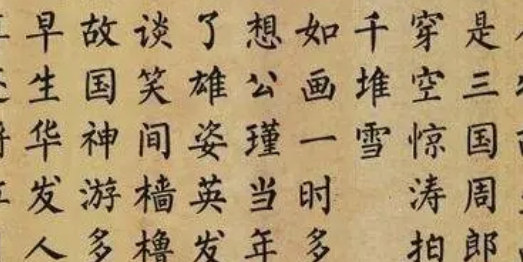 是三国周郎
穿空惊涛拍
千堆雪
如画一时多
想公瑾当年
了雄姿英发
谈笑间樯橹
故国神游多
早生华发人